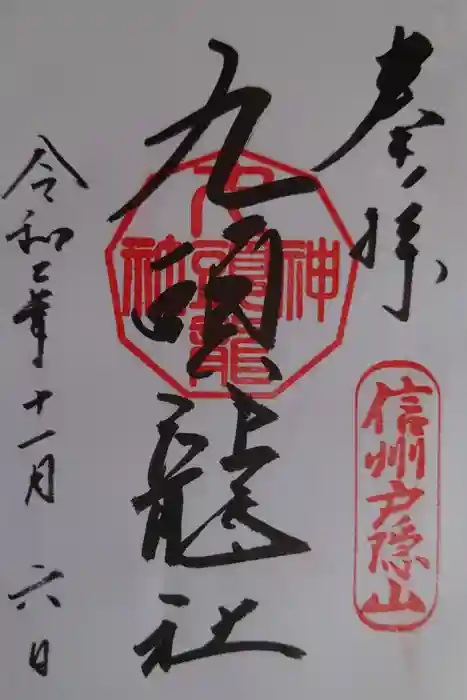 奉拝
信州戸隠山
九頭龍社
九頭龍神社
令和二年十一月六日